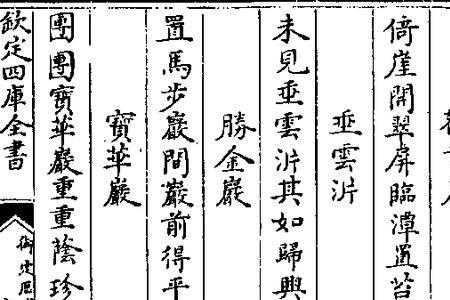 倚崖開翠屏臨潭置苔
垂雲沜
未見垂雲沜其如歸興
勝金巖
置馬步巖間巖前得平
寶華巖
團團寶華巖重重蔭珍
欽定四庫全書
御定